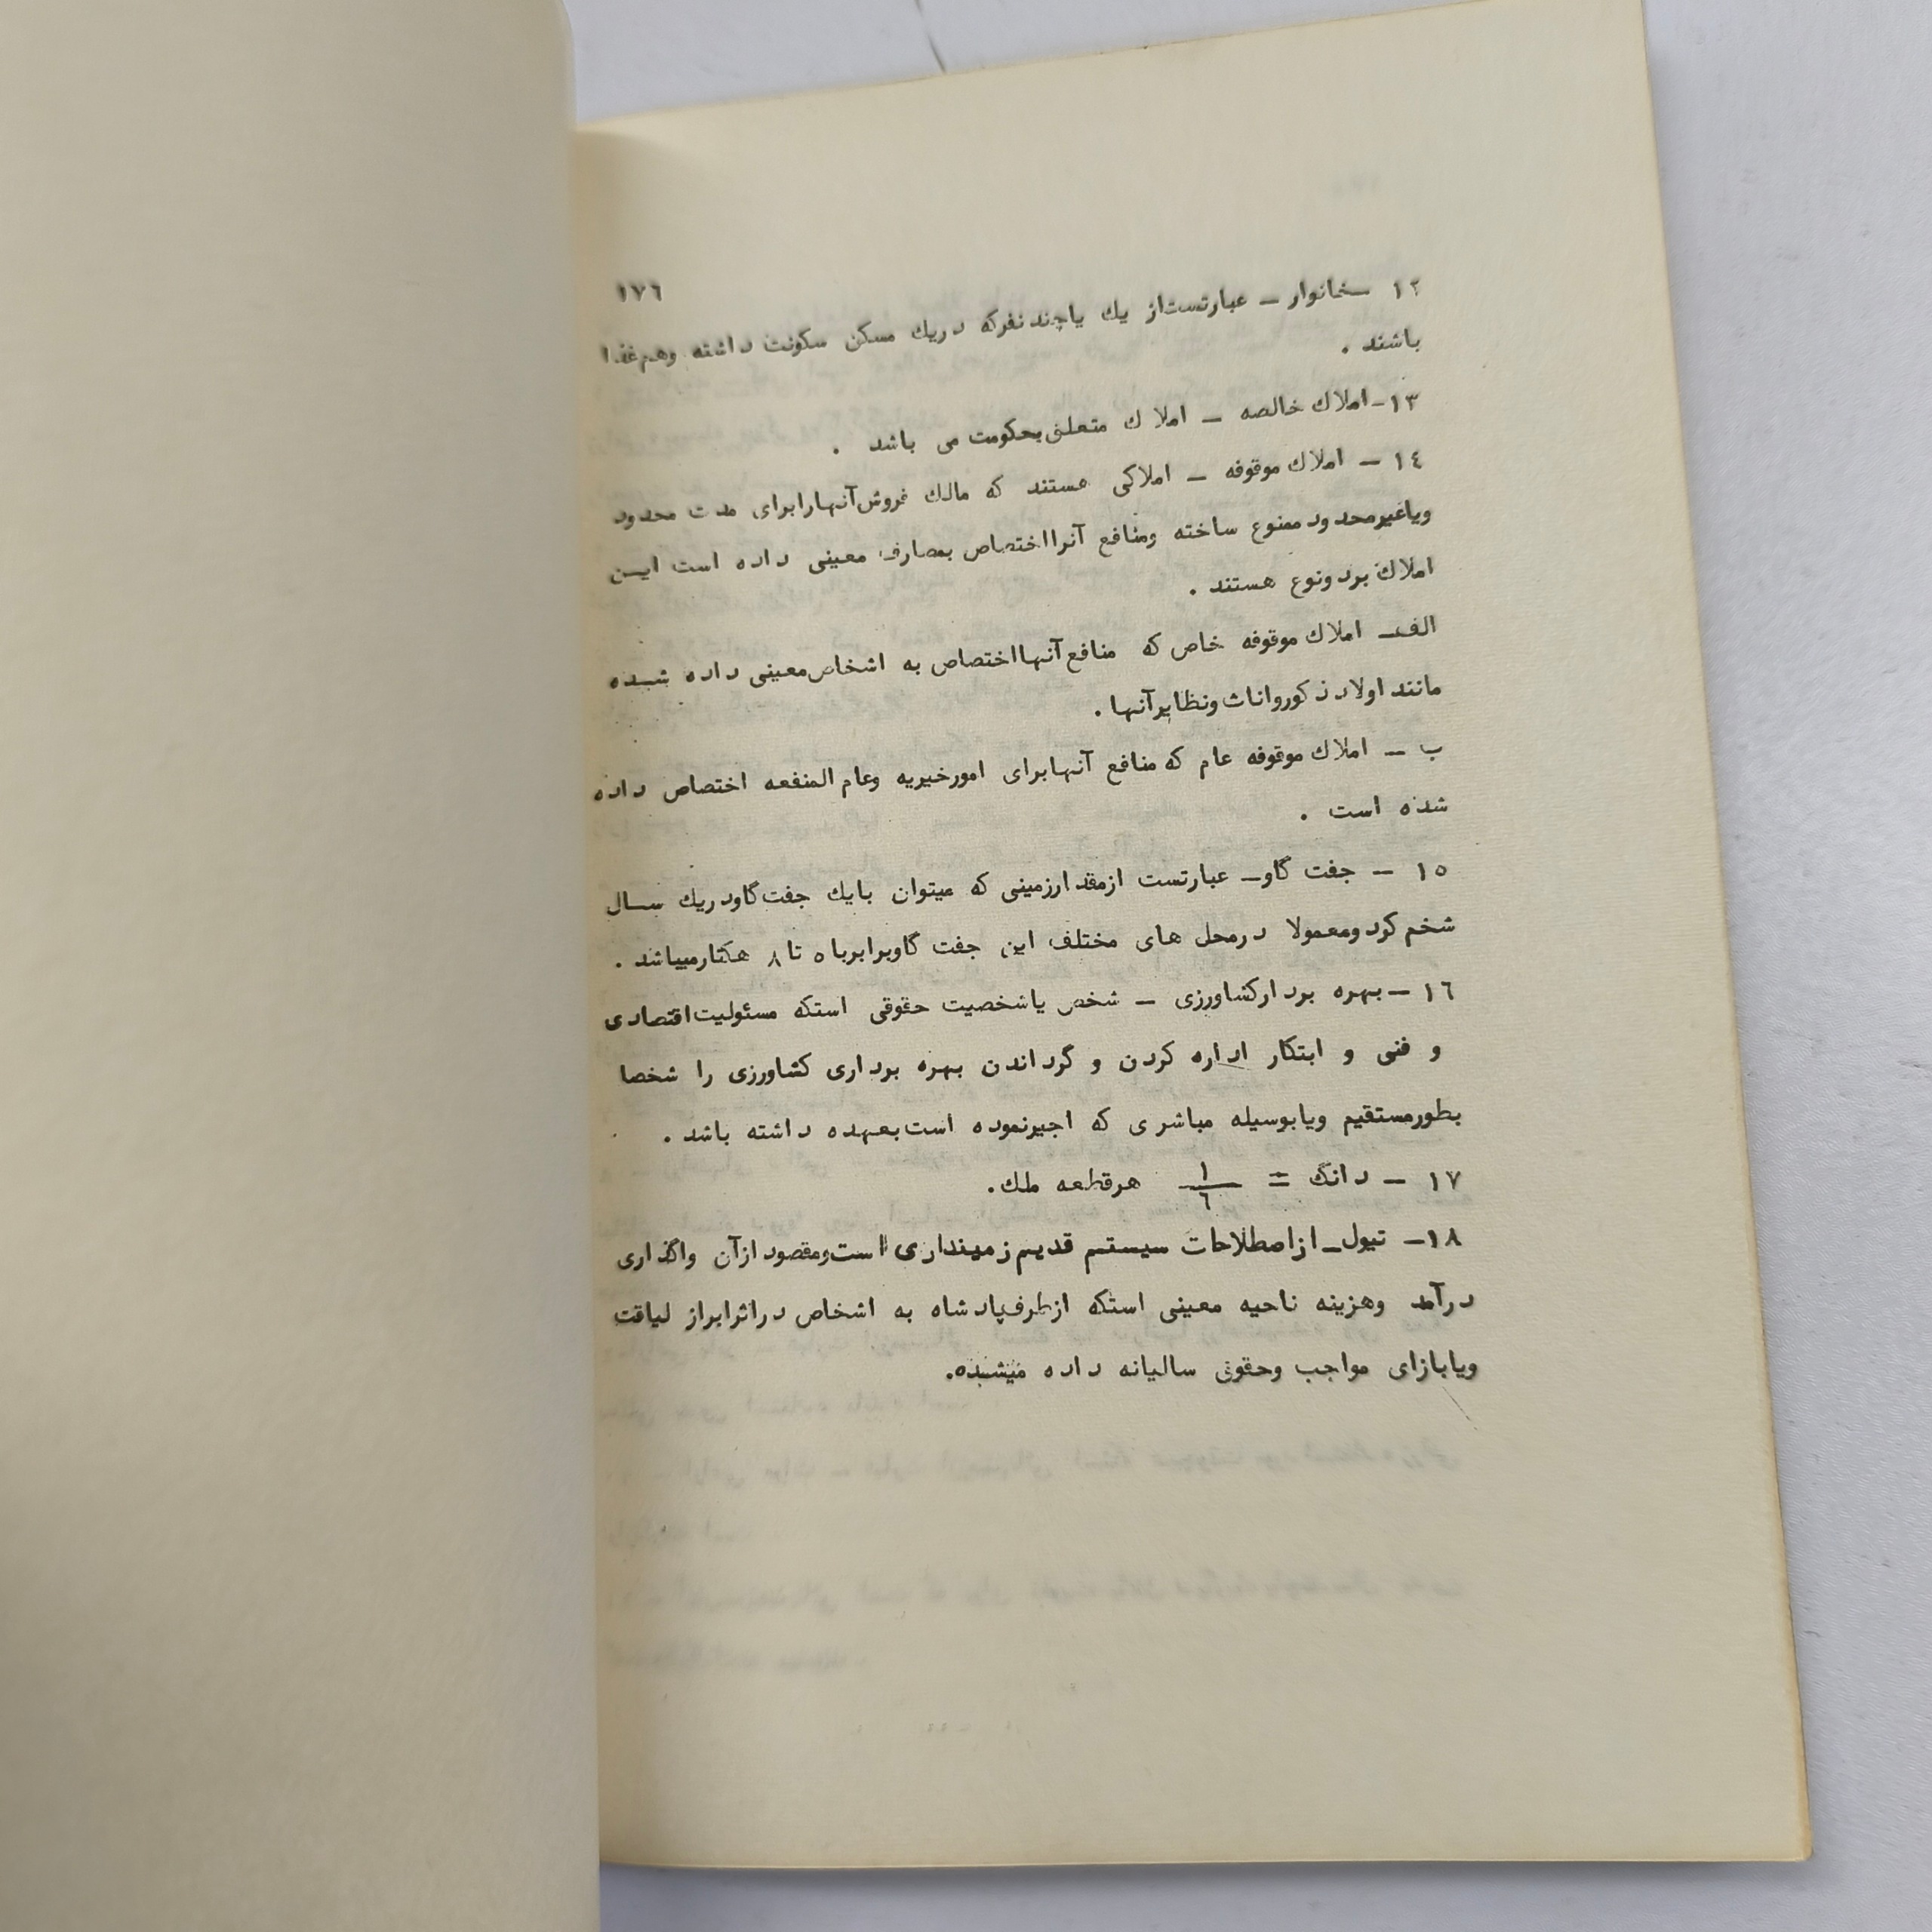 ١٧٦
١٢ ـ خانوار ـ عبارتست از يك يا چند نفر كه در يك مسكن سكونت داشته و هم غذا
باشند .
١٣ـ املاك خالصه ـ املاك متعلق بحكومت مى باشد .
١٤ ـ املاك موقوفه ـ املاكى هستند كه مالك فروش آنها را براى مدت محدود
و يا غير محدود ممنوع ساخته و منافع آنرا اختصاص بمصارف معينى داده است ايـن
املاك بر دو نوع هستند .
الف ـ املاك موقوفه خاص كه منافع آنها اختصاص به اشخاص معينى داده شـده
مانند اولاد ذكور و اناث و نظاير آنها .
ب ـ املاك موقوفه عام كه منافع آنها براى امور خيريه و عام المنفعه اختصاص داده
شده است .
١٥ ـ جفت گاو ـ عبارتست از مقدار زمينى كه ميتوان با يك جفت گاو در يك سـال
شخم كرد و معمولا در محل هاى مختلف اين جفت گاو برابر با ٥ تا ٨ هكتار ميباشد .
١٦ ـ بهره بردار كشاورزى ـ شخص يا شخصيت حقوقى استكه مسئوليت اقتصادى
و فنى و ابتكار اداره كردن و گرداندن بهره بردارى كشاورزى را شخصا
بطور مستقيم و يا بوسيله مباشرى كه اجير نموده است بعهده داشته باشد .
١٧ ـ دانگ = ١/٦ هر قطعه ملك .
١٨ـ تيول ـ از اصطلاحات سيستم قديم زميندارى است و مقصود از آن واگذارى
درآمد و هزينه ناحيه معينى استكه از طرف پادشاه به اشخاص در اثر ابراز لياقت
و يا بازاى مواجب و حقوق ساليانه داده ميشده.